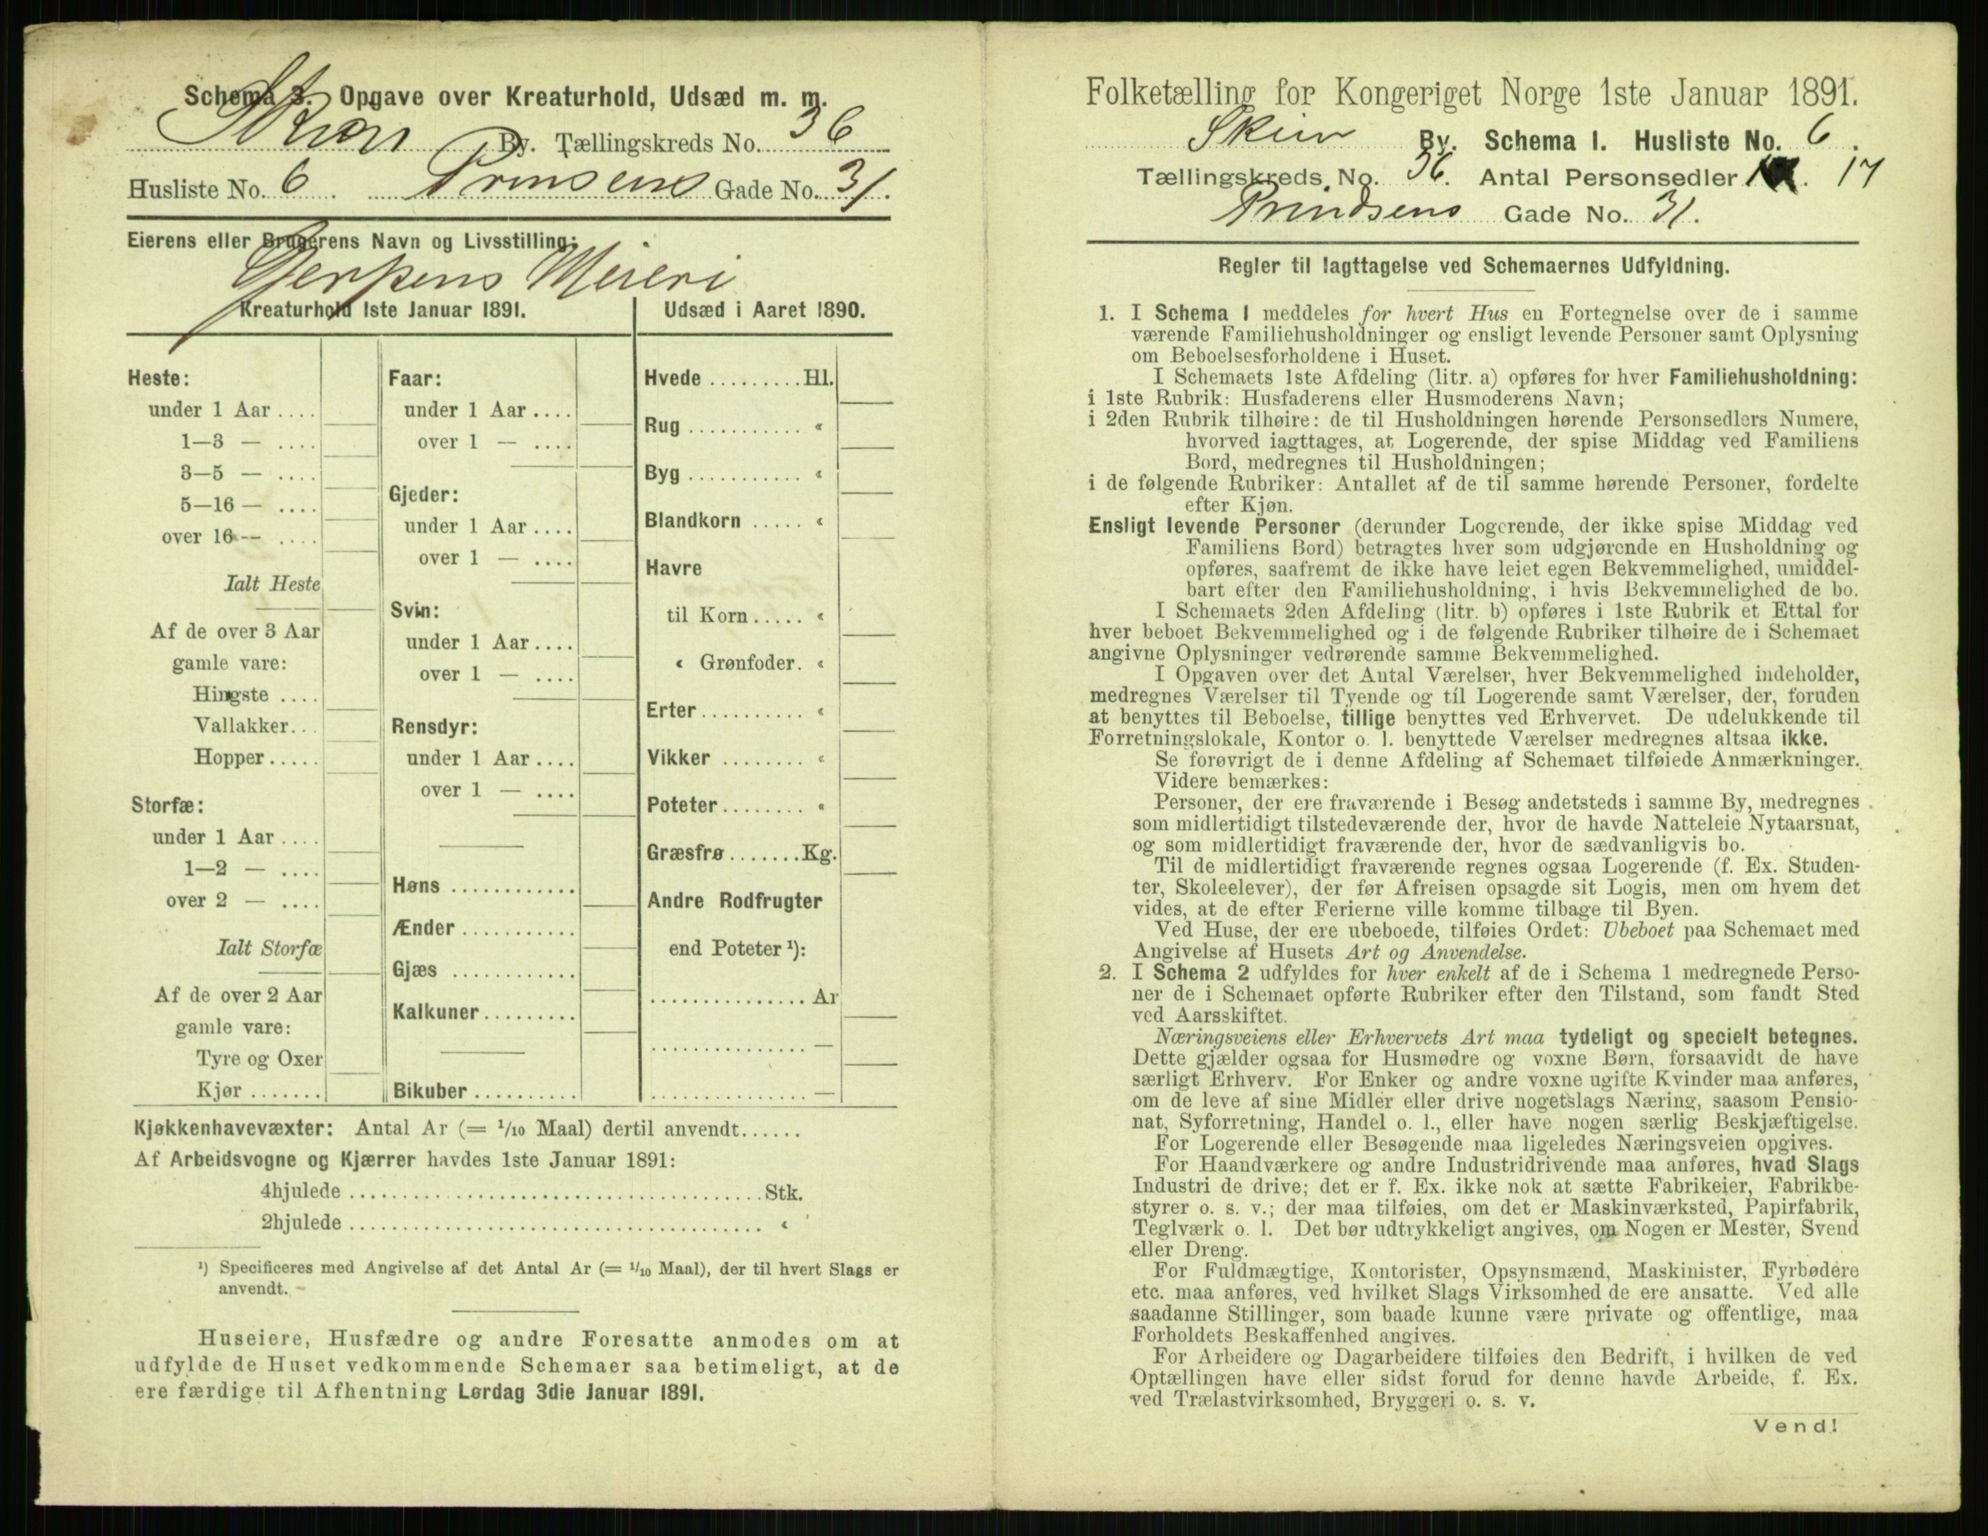 Schema 3. Opgave over Kreaturhold, Udsæd m. m.
Skien By. Tællingskreds No. 36
Husliste No. 6 Prinsens Gade No. 31.
Eierens eller Brugerens Navn og Livsstilling:
Gerpens Meieri
Kreaturhold 1ste Januar 1891.
Heste:
under 1 Aar ....
1—3 — ....
3—5 — ....
5—16 — ....
over 16 — ....
Ialt Heste
Af de over 3 Aar
gamle vare:
Hingste ....
Vallakker...
Hopper.....
Storfæ:
under 1 Aar ....
1—2 — ....
over 2 — ....
Ialt Storfæ
Af de over 2 Aar
gamle vare:
Tyre og Oxer
Kjør .......
Faar:
under 1 Aar ....
over 1 — ....
Gjeder:
under 1 Aar ....
over 1 — ....
Svin:
under 1 Aar ....
over 1 — ....
Rensdyr:
under 1 Aar ....
over 1 — ....
Høns ............
Ænder ...........
Gjæs ............
Kalkuner.........
Bikuber ..........
Udsæd i Aaret 1890.
Hvede .........Hl.
Rug ........... «
Byg ........... «
Blandkorn ..... «
Havre
til Korn..... «
« Grønfoder. «
Erter.......... «
Vikker ........ «
Poteter........ «
Græsfrø.......Kg.
Andre Rodfrugter
end Poteter ¹):
............... Ar
............... —
............... —
Kjøkkenhavevæxter: Antal Ar (= 1/10 Maal) dertil anvendt......
Af Arbeidsvogne og Kjærrer havdes 1ste Januar 1891:
4hjulede ........................................Stk.
2hjulede ........................................ «
¹) Specificeres med Angivelse af det Antal Ar (= 1/10 Maal), der til hvert Slags er
anvendt.
Huseiere, Husfædre og andre Foresatte anmodes om at
udfylde de Huset vedkommende Schemaer saa betimeligt, at de
ere færdige til Afhentning Lørdag 3die Januar 1891.
Folketælling for Kongeriget Norge 1ste Januar 1891.
Skien By. Schema I. Husliste No. 6.
Tællingskreds No. 36. Antal Personsedler 17
Prindsens Gade No. 31.
Regler til Iagttagelse ved Schemaernes Udfyldning.
1. I Schema I meddeles for hvert Hus en Fortegnelse over de i samme
værende Familiehusholdninger og ensligt levende Personer samt Oplysning
om Beboelsesforholdene i Huset.
I Schemaets 1ste Afdeling (litr. a) opføres for hver Familiehusholdning:
i 1ste Rubrik: Husfaderens eller Husmoderens Navn;
i 2den Rubrik tilhøire: de til Husholdningen hørende Personsedlers Numere,
hvorved iagttages, at Logerende, der spise Middag ved Familiens
Bord, medregnes til Husholdningen;
i de følgende Rubriker: Antallet af de til samme hørende Personer, fordelte
efter Kjøn.
Ensligt levende Personer (derunder Logerende, der ikke spise Middag ved
Familiens Bord) betragtes hver som udgjørende en Husholdning og
opføres, saafremt de ikke have leiet egen Bekvemmelighed, umiddel-
bart efter den Familiehusholdning, i hvis Bekvemmelighed de bo.
I Schemaets 2den Afdeling (litr. b) opføres i 1ste Rubrik et Ettal for
hver beboet Bekvemmelighed og i de følgende Rubriker tilhøire de i Schemaet
angivne Oplysninger vedrørende samme Bekvemmelighed.
I Opgaven over det Antal Værelser, hver Bekvemmelighed indeholder,
medregnes Værelser til Tyende og til Logerende samt Værelser, der, foruden
at benyttes til Beboelse, tillige benyttes ved Erhvervet. De udelukkende til
Forretningslokale, Kontor o. l. benyttede Værelser medregnes altsaa ikke.
Se forøvrigt de i denne Afdeling af Schemaet tilføiede Anmærkninger.
Videre bemærkes:
Personer, der ere fraværende i Besøg andetsteds i samme By, medregnes
som midlertidigt tilstedeværende der, hvor de havde Natteleie Nytaarsnat,
og som midlertidigt fraværende der, hvor de sædvanligvis bo.
Til de midlertidigt fraværende regnes ogsaa Logerende (f. Ex. Studen-
ter, Skoleelever), der før Afreisen opsagde sit Logis, men om hvem det
vides, at de efter Ferierne ville komme tilbage til Byen.
Ved Huse, der ere ubeboede, tilføies Ordet: Ubeboet paa Schemaet med
Angivelse af Husets Art og Anvendelse.
2. I Schema 2 udfyldes for hver enkelt af de i Schema 1 medregnede Perso-
ner de i Schemaet opførte Rubriker efter den Tilstand, som fandt Sted
ved Aarsskiftet.
Næringsveiens eller Erhvervets Art maa tydeligt og specielt betegnes.
Dette gjælder ogsaa for Husmødre og voxne Børn, forsaavidt de have
særligt Erhverv. For Enker og andre voxne ugifte Kvinder maa anføres,
om de leve af sine Midler eller drive nogetslags Næring, saasom Pensio-
nat, Syforretning, Handel o. l., eller have nogen særlig Beskjæftigelse.
For Logerende eller Besøgende maa ligeledes Næringsveien opgives.
For Haandværkere og andre Industridrivende maa anføres, hvad Slags
Industri de drive; det er f. Ex. ikke nok at sætte Fabrikeier, Fabrikbe-
styrer o. s. v.; der maa tilføies, om det er Maskinværksted, Papirfabrik,
Teglværk o. l. Det bør udtrykkeligt angives, om Nogen er Mester, Svend
eller Dreng.
For Fuldmægtige, Kontorister, Opsynsmænd, Maskinister, Fyrbødere
etc. maa anføres, ved hvilket Slags Virksomhed de ere ansatte. Ved alle
saadanne Stillinger, som baade kunne være private og offentlige, maa
Forholdets Beskaffenhed angives.
For Arbeidere og Dagarbeidere tilføies den Bedrift, i hvilken de ved
Optællingen have eller sidst forud for denne havde Arbeide, f. Ex.
ved Trælastvirksomhed, Bryggeri o. s. v.
Vend!